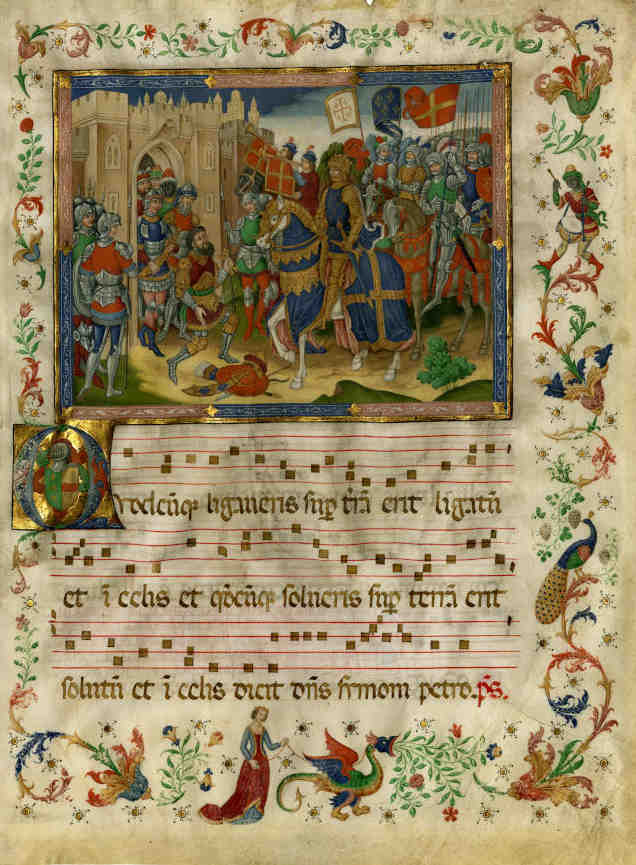 Quodcũq ligaueris sup̃ trã erit ligatũ
et ĩ celis et qõcũq solueris sup̃ terrã erit
solutũ et ĩ celis dicit dñs symoni petro. p̃s.